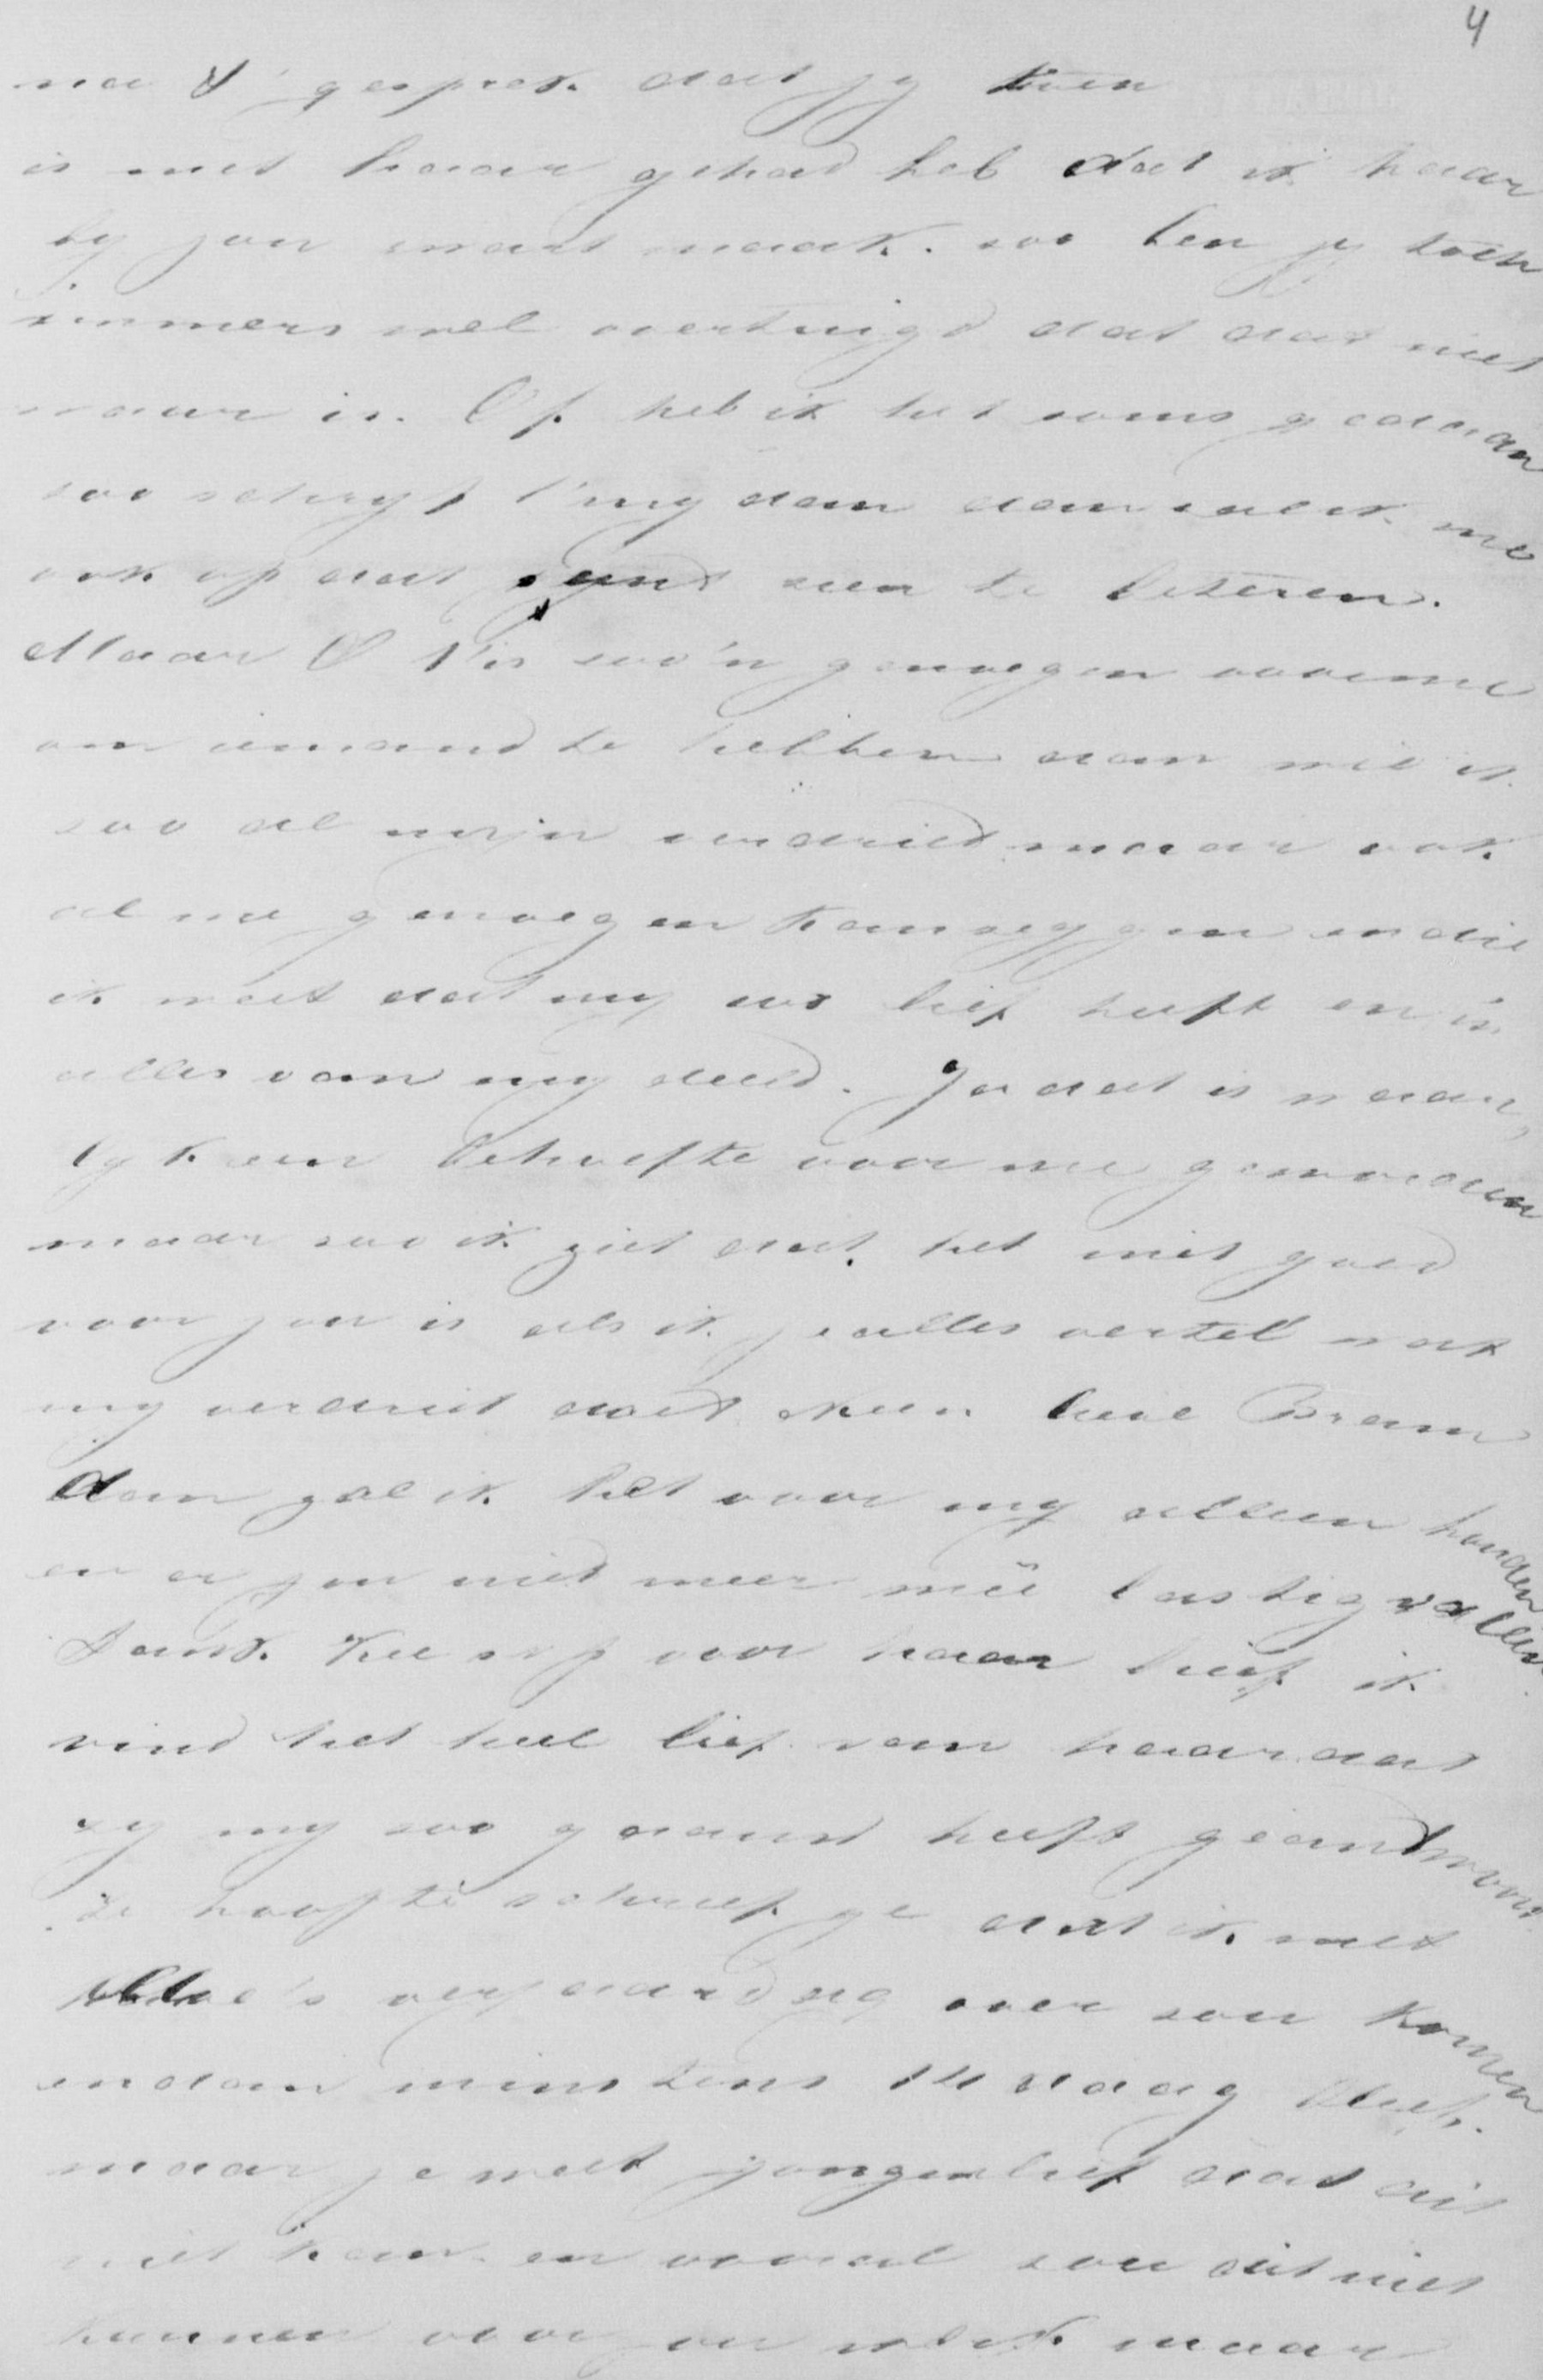 4
na 't gesprek dat jy toen
is met haar gehad heb dat ik haar
by jou zwart maak. zoo ben jy toch
immers wel overtuigd dat dat niet
waar is. Of heb ik het soms gedaan
zoo schryf 't my dan dan zal ik me
ook op dat punt zien te beteren.
Maar O 't is zoo'n genoegen voor me
om iemand te hebben aan wie ik
zoo al mijn verdriet maar ook
al me genoegen kan zeggen en die
ik weet dat my zoo lief heeft en in
alles van my deeld. Ja dat is waar,
lyk een behoefte voor me geworden
maar zoo ik ziet dat het niet goed
voor jou is als ik je alles vertel wat
my verdriet doet neen beste Bram
dan zal ik het voor my alleen houden
en er jou niet meer meê lastig vallen.
Dank Kee svp voor haar brief ik
vind het heel lief van haar dat
zy my zoo gaauw heeft geantwoord
Ze hoopte schreef ze dat ik met
verjaardag over zou komen
en dan minstens 14 daag bleef.
maar je weet jongenlief dat dit
niet kan en vooral zou dit niet
kunnen voor een week maar